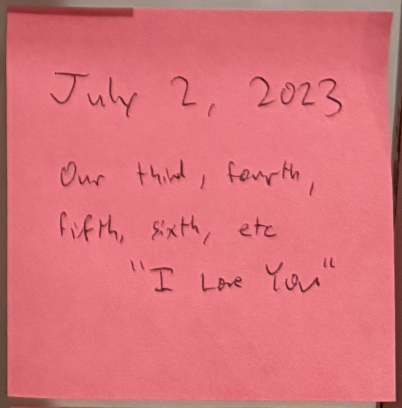 July 2, 2023
Our third, fourth,
fifth, sixth, etc
"I Love You"